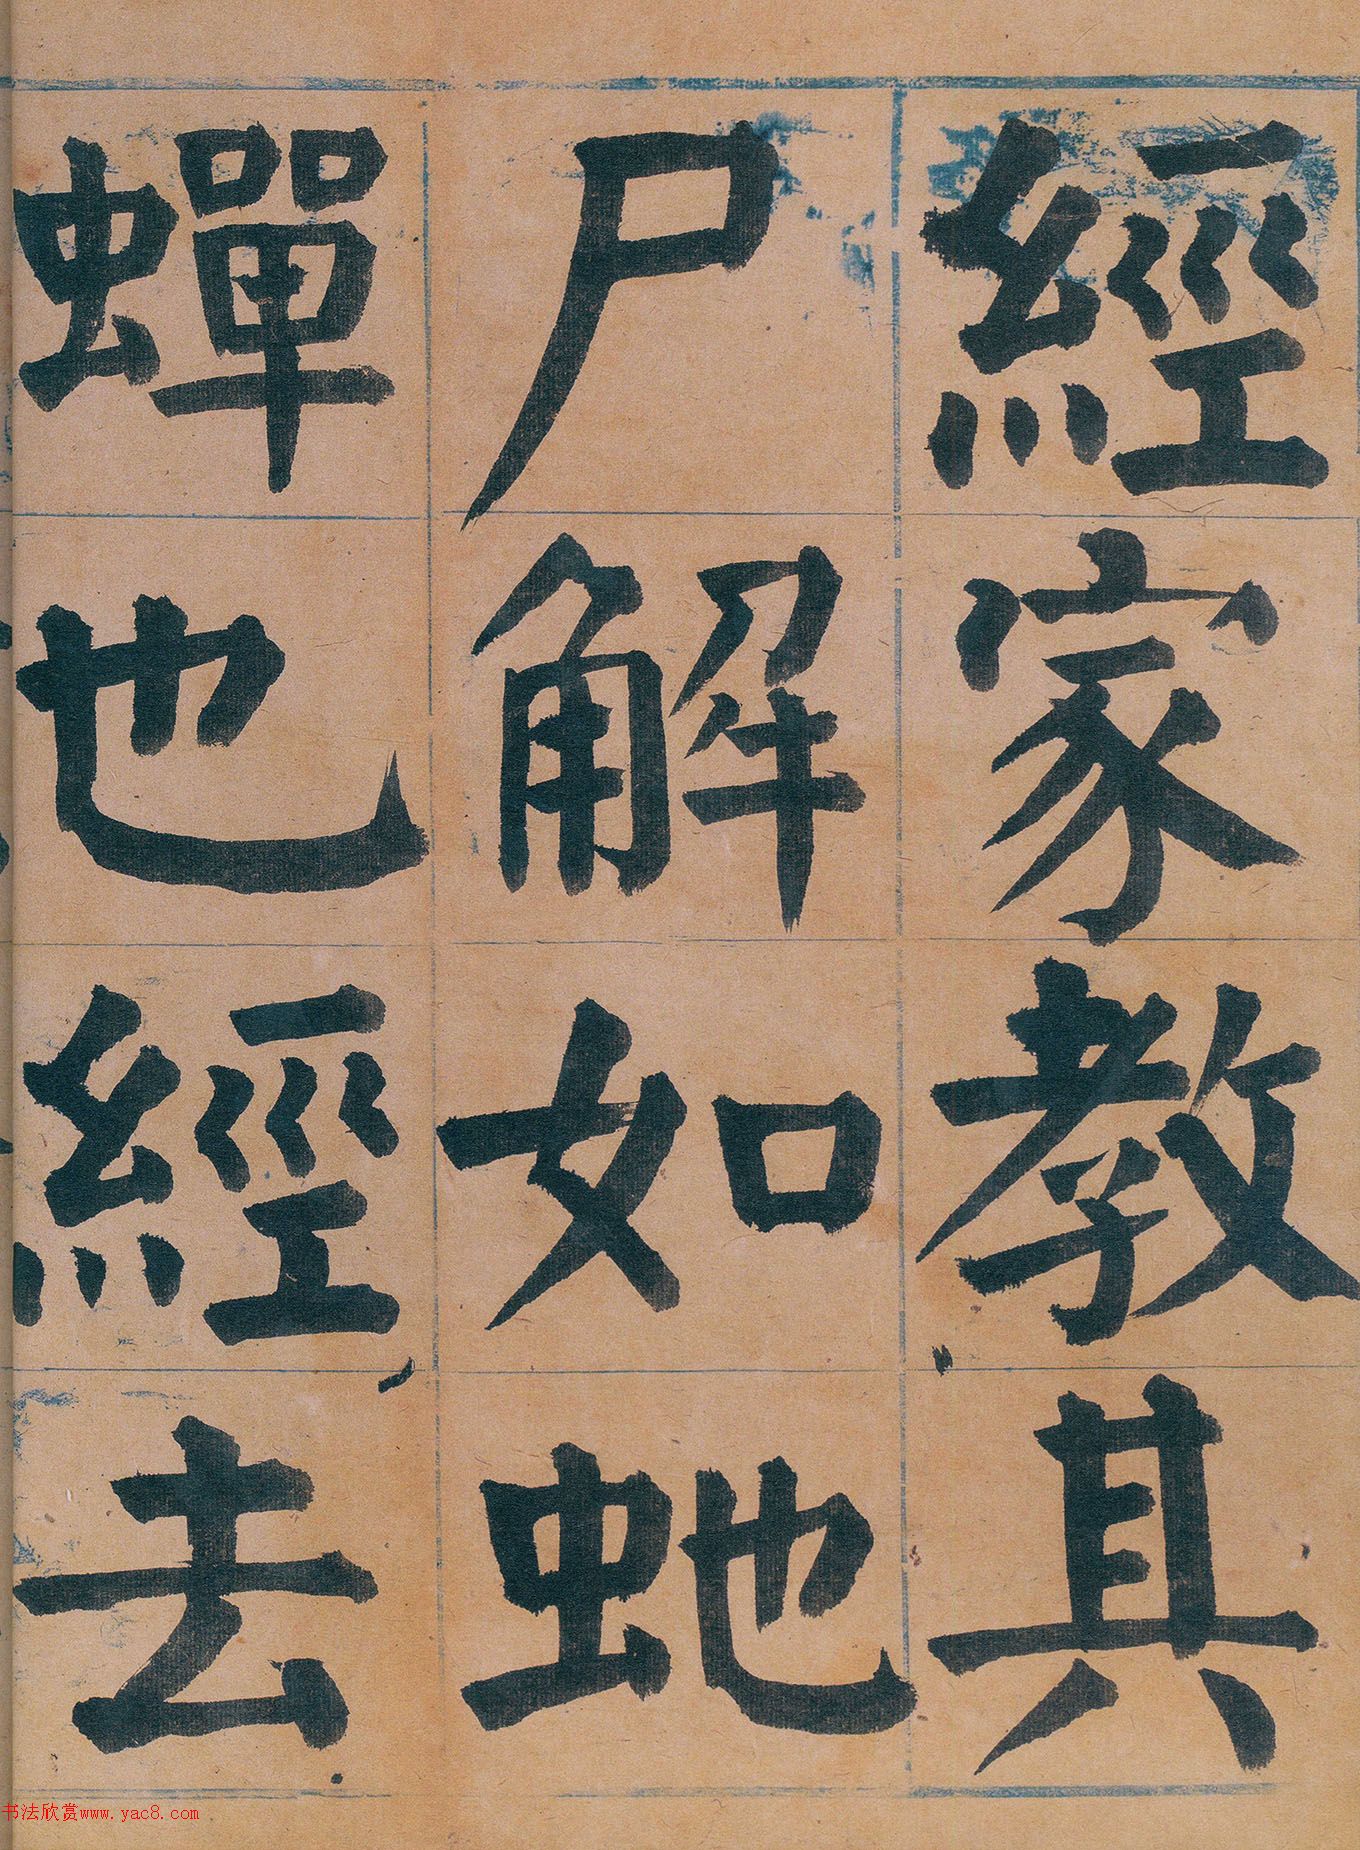 經家教其
尸解如虵
蟬也經去
书法欣赏www.yac8.com